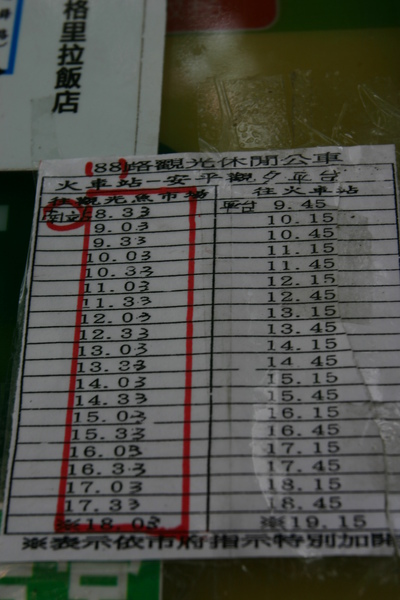 格里拉飯店
88路觀光休閒公車
火車站-安平觀夕平台
往觀光魚市場 往火車站
8.33 平台 9.45
9.03 10.15
9.33 10.45
10.03 11.15
10.33 11.45
11.03 12.15
11.33 12.45
12.03 13.15
12.33 13.45
13.03 14.15
13.33 14.45
14.03 15.15
14.33 15.45
15.03 16.15
15.33 16.45
16.03 17.15
16.33 17.45
17.03 18.15
17.33 18.45
※18.03 ※19.15
※表示依市府指示特別加開